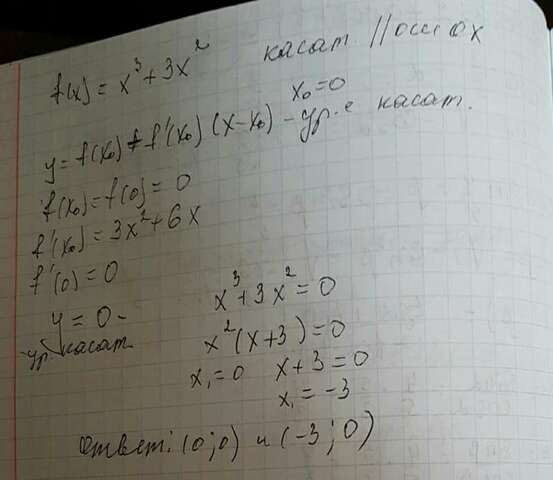 f(x) = x³ + 3x² касат. // оси OX
x₀ = 0
y = f(x₀) + f'(x₀)(x - x₀) - ур. е касат.
f(x₀) = f(0) = 0
f'(x₀) = 3x² + 6x
f'(0) = 0
y = 0 -
ур. касат.
x³ + 3x² = 0
x²(x + 3) = 0
x₁ = 0 x + 3 = 0
x₁ = -3
Ответ: (0; 0) и (-3; 0)